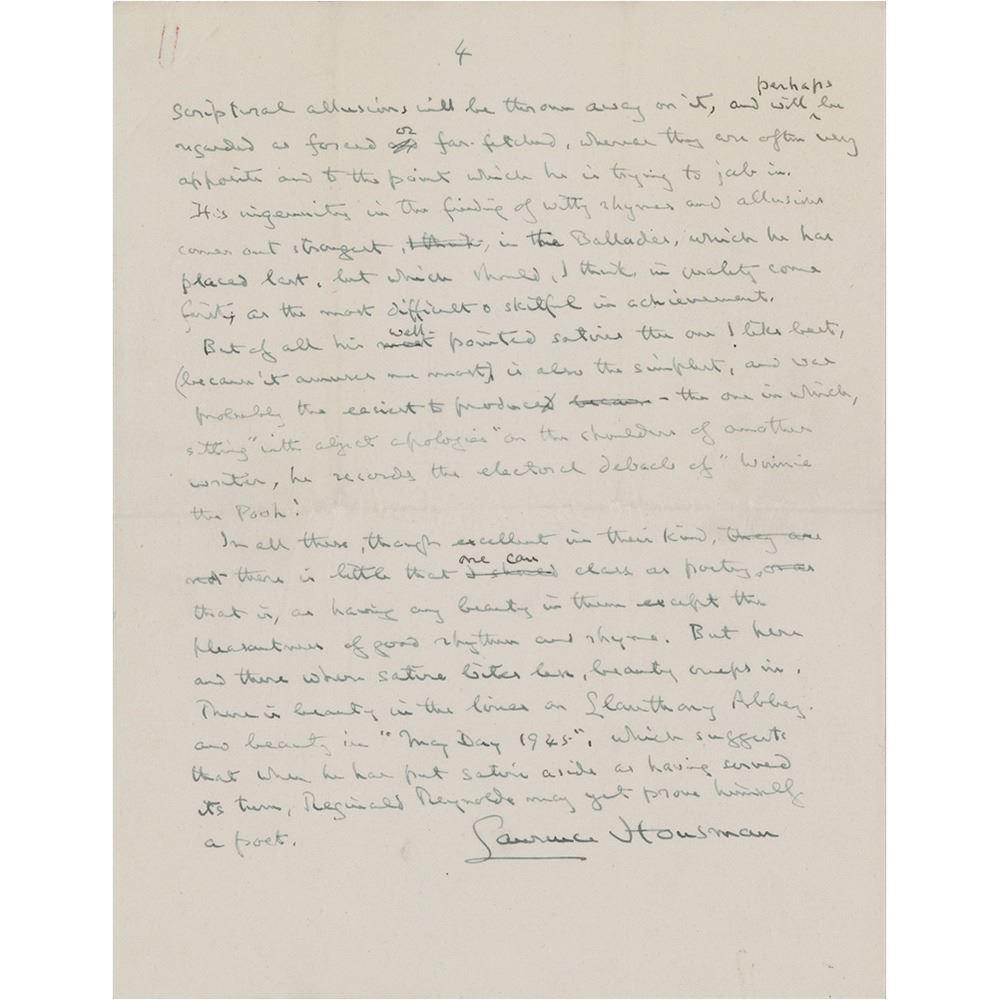 4
perhaps
scriptural allusions will be thrown away on it, and will be
regarded as forced or far-fetched, whereas they are often very
apposite and to the point which he is trying to jab in.
His ingenuity in the finding of witty rhymes and allusions
comes out strongest, I think, in the Ballades, which he has
placed last, but which should, I think, in quality come
first, as the most difficult & skilful in achievement.
well-
But of all his most pointed satires the one I like best,
(because it amuses me most) is also the simplest, and was
probably the easiest to produce - the one in which,
sitting "with abject apologies" on the shoulders of another
writer, he records the electoral debacle of "Winnie
the Pooh!
In all these, though excellent in their kind, they are
one can
not there is little that I should class as poetry,
that is, as having any beauty in them except the
pleasantness of good rhythm and rhyme. But here
and there where satire bites less, beauty creeps in.
There is beauty in the lines on Llanthony Abbey,
and beauty in "May Day 1945", which suggests
that when he has put satire aside as having served
its turn, Reginald Reynolds may yet prove himself
a poet.
Laurence Housman